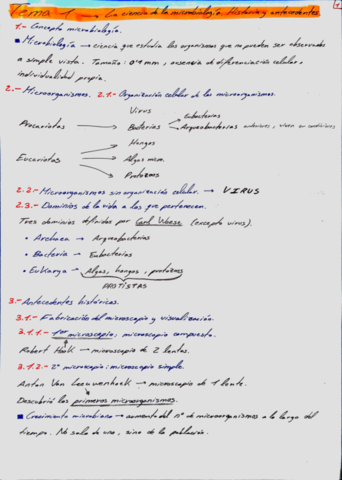 Tema 1 → La ciencia de la microbiología. Historia y antecedentes. 1
1.- Concepto microbiología.
■ Microbiología → ciencia que estudia los organismos que no pueden ser observados
a simple vista. Tamaño: 0'1 mm, ausencia de diferenciación celular,
individualidad propia.
2.- Microorganismos. 2.1.- Organización celular de los microorganismos.
Virus
Procariotas → Bacterias → Eubacterias
Arqueobacterias anteriores, viven en condiciones
Hongos
Eucariotas → Algas mm.
Protozoos
2.2.- Microorganismos sin organización celular. → VIRUS
2.3.- Dominios de la vida a los que pertenecen.
Tres dominios definidos por Carl Woese (excepto virus).
• Archaea → Arqueobacterias
• Bacteria → Eubacterias
• Eukarya → Algas, hongos, protozoos
PROTISTAS
3.- Antecedentes históricos.
3.1.- Fabricación del microscopio y visualización.
3.1.1.- 1er microscopio; microscopio compuesto.
Robert Hook → microscopio de 2 lentes.
3.1.2.- 2º microscopio: microscopio simple.
Antan Van Leeuwenhoek → microscopio de 1 lente.
Descubrió los primeros microorganismos.
■ Crecimiento microbiano → aumento del nº de microorganismos a lo largo del
tiempo. No solo de uno, sino de la población.